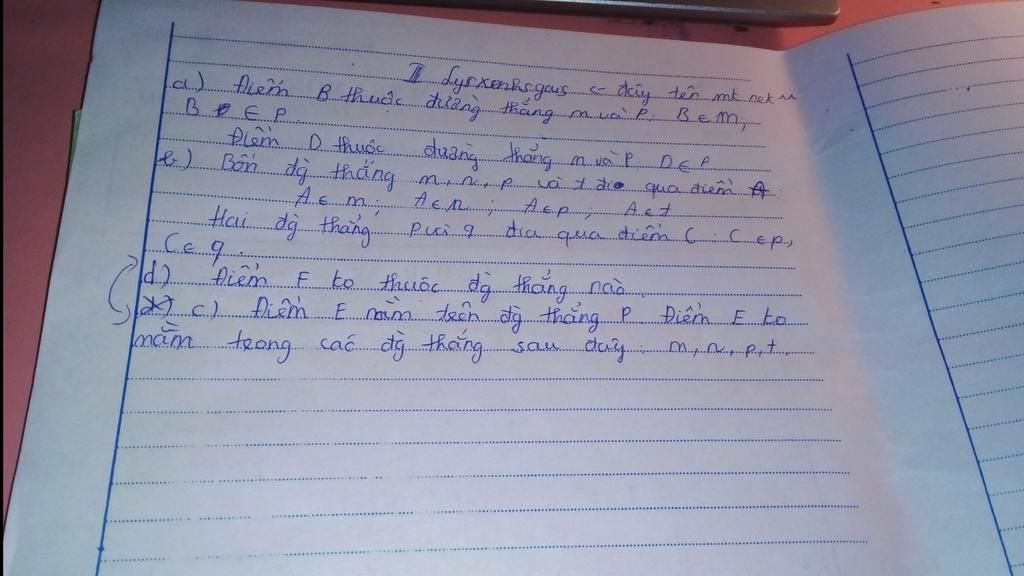 II Lyrxenhsgaus <- đây tên mk nek ~~
a.) Điểm B thuộc đường thẳng m và P. B ∈ m,
B ∈ P.
Điểm D thuộc đường thẳng m và P. D ∈ P
b.) Bốn đg thẳng m, n, p và t đi qua điểm A
A ∈ m; A ∈ n; A ∈ p; A ∈ t
Hai đg thẳng p q đia qua điểm C: C ∈ p,
C ∈ q.
d.) Điểm F ko thuộc đg thẳng nào.
c.) Điểm E nằm trên đg thẳng P. Điểm E ko
nằm trong các đg thẳng sau đây: m, n, p, t.